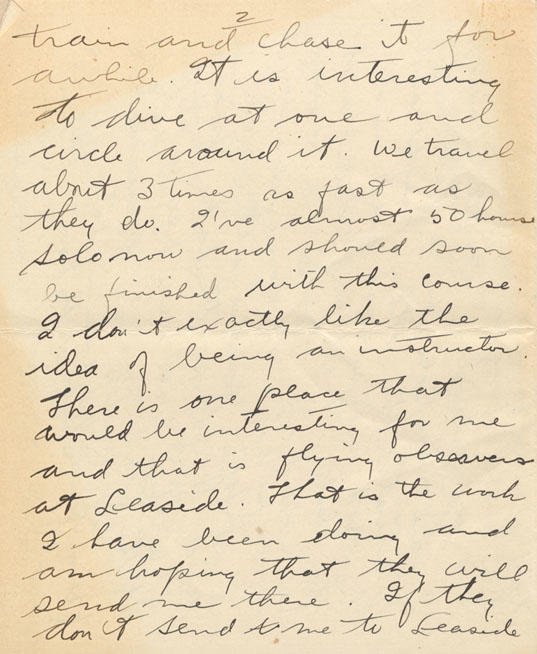 2
train and chase it for
awhile. It is interesting
to dive at one and
circle around it. We travel
about 3 times as fast as
they do. I've almost 50 hours
solo now and should soon
be finished with this course.
I don't exactly like the
idea of being an instructor.
There is one place that
would be interesting for me
and that is flying observers
at Leaside. That is the work
I have been doing and
am hoping that they will
send me there. If they
don't send me to Leaside